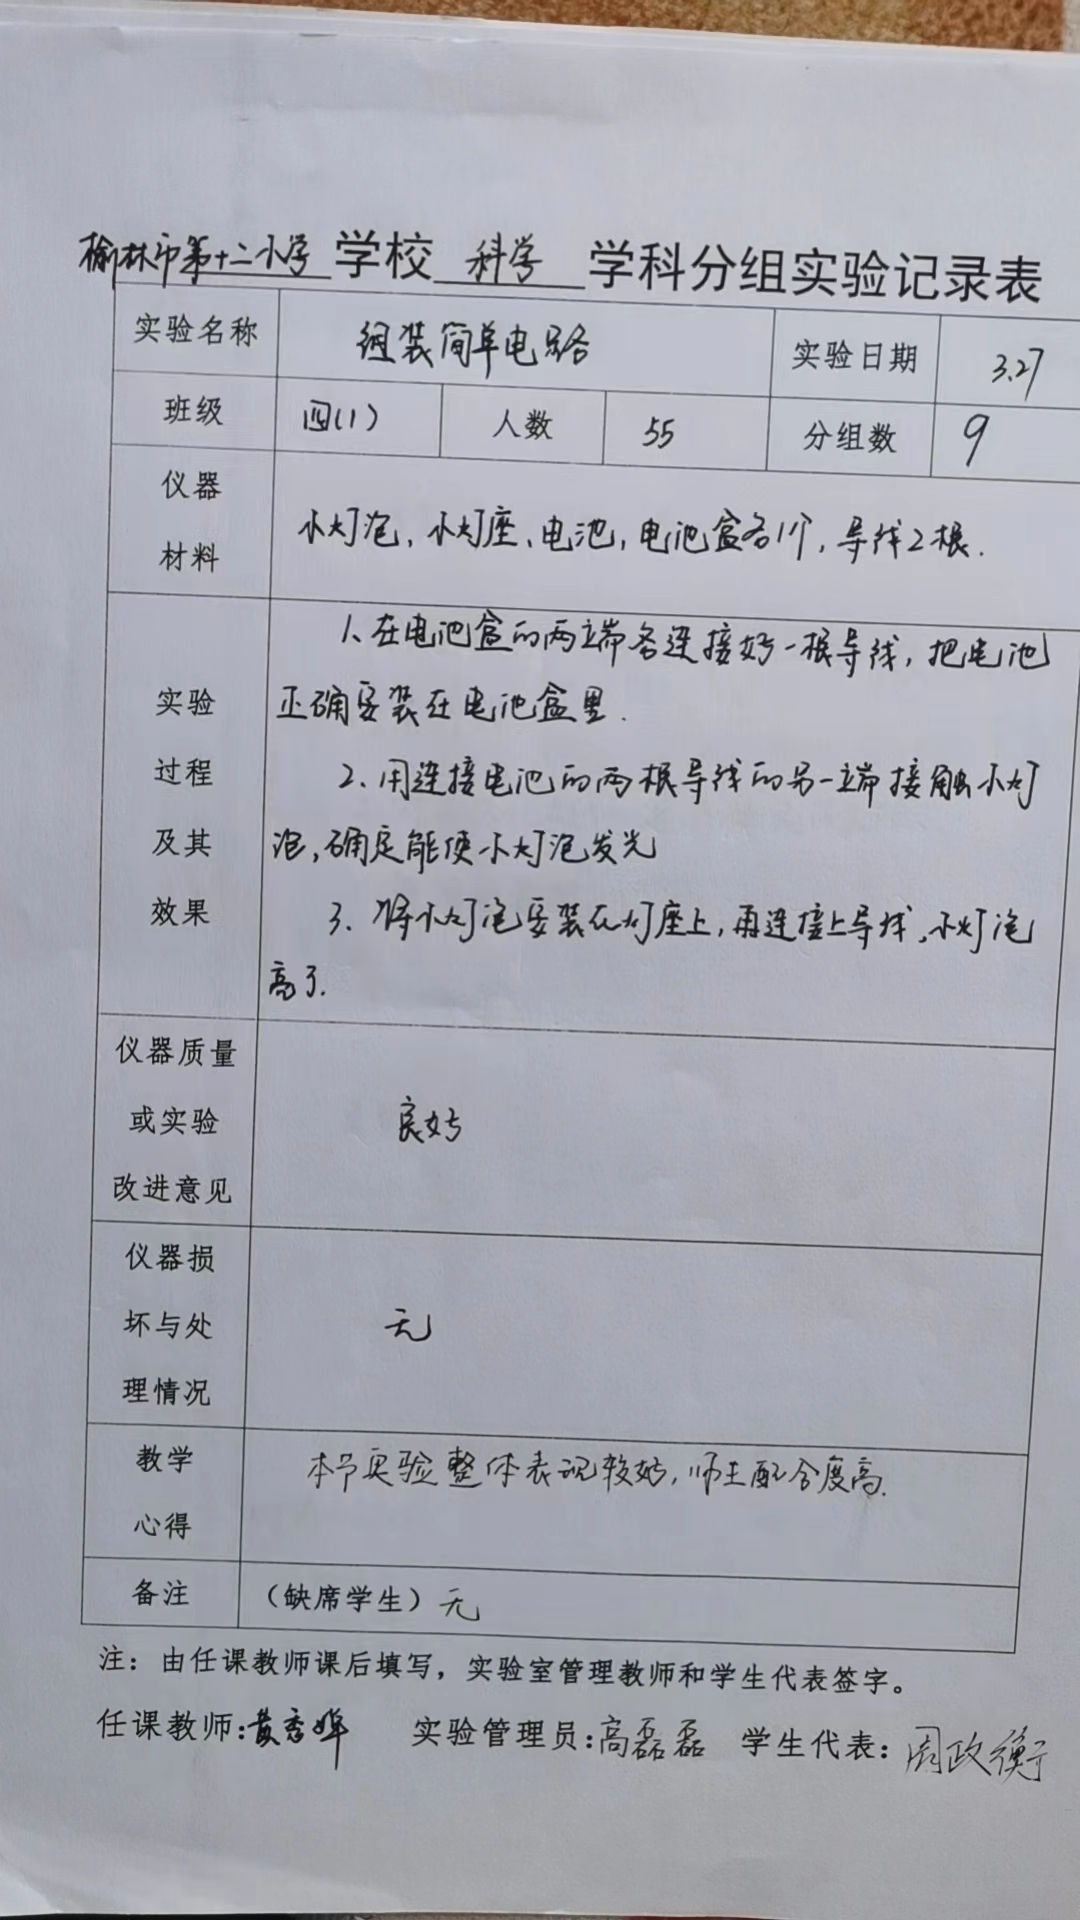 榆林市第十二小学 学校 科学 学科分组实验记录表
实验名称 组装简单电路 实验日期 3.27
班级 四(1) 人数 55 分组数 9
仪器
材料
小灯泡，小灯座、电池，电池盒各1个，导线2根.
实验
过程
及其
效果
1、在电池盒的两端各连接好一根导线，把电池
正确安装在电池盒里.
2、用连接电池的两根导线的另一端接触小灯
泡，确定能使小灯泡发光
3、将小灯泡安装在灯座上，再连接上导线，小灯泡
高了.
仪器质量
或实验
改进意见
良好
仪器损
坏与处
理情况
无
教学
心得
本节实验整体表现较好，师生配合度高.
备注 （缺席学生）无
注：由任课教师课后填写，实验室管理教师和学生代表签字。
任课教师：黄秀 实验管理员：高磊磊 学生代表：周政衡